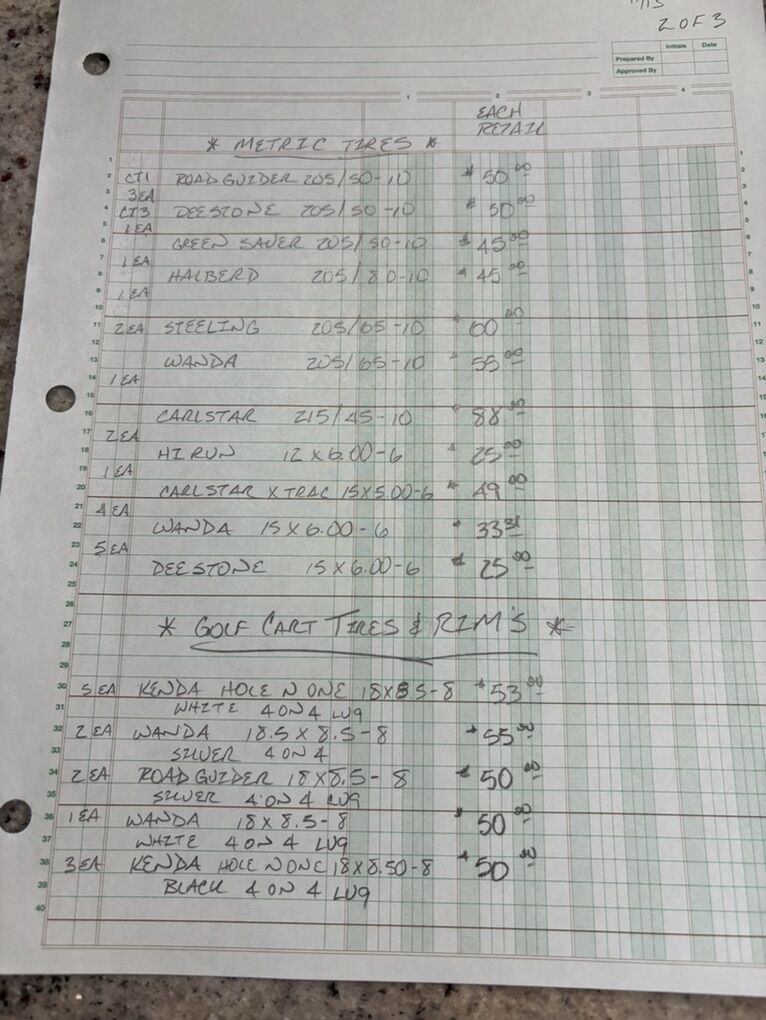 2 OF 3
Initials Date
Prepared By
Approved By
1 2 3 4
EACH
RETAIL
* METRIC TIRES *
CT1 ROADGUIDER 205/50-10 $ 50 00
3EA
CT3 DEESTONE 205/50-10 $ 50 00
1EA
GREEN SAVER 205/50-10 $ 45 00
1EA
HALBERD 205/80-10 $ 45 00
1EA
2EA STEELING 205/65-10 $ 60 00
WANDA 205/65-10 $ 55 00
1EA
CARLSTAR 215/45-10 $ 88
2EA
HI RUN 12X6.00-6 $ 25 00
1EA
CARLSTAR XTRAC 15X5.00-6 $ 49 00
4EA
WANDA 15X6.00-6 $ 33 31
5EA
DEESTONE 15X6.00-6 $ 25 00
* GOLF CART TIRES & RIM'S *
5EA KENDA HOLE N ONE 18X8.5-8 $ 53 00
WHITE 4 ON 4 LUG
2EA WANDA 18.5 X 8.5-8 $ 55 00
SILVER 4 ON 4
2EA ROADGUIDER 18X8.5-8 $ 50 00
SILVER 4 ON 4 LUG
1EA WANDA 18X8.5-8 $ 50 00
WHITE 4 ON 4 LUG
3EA KENDA HOLE N ONE 18X8.50-8 $ 50 00
BLACK 4 ON 4 LUG